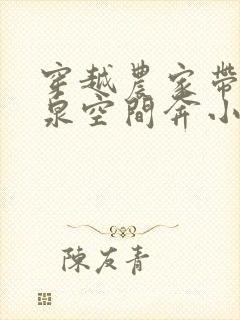 穿越農家帶
泉空間奔小
陳友青